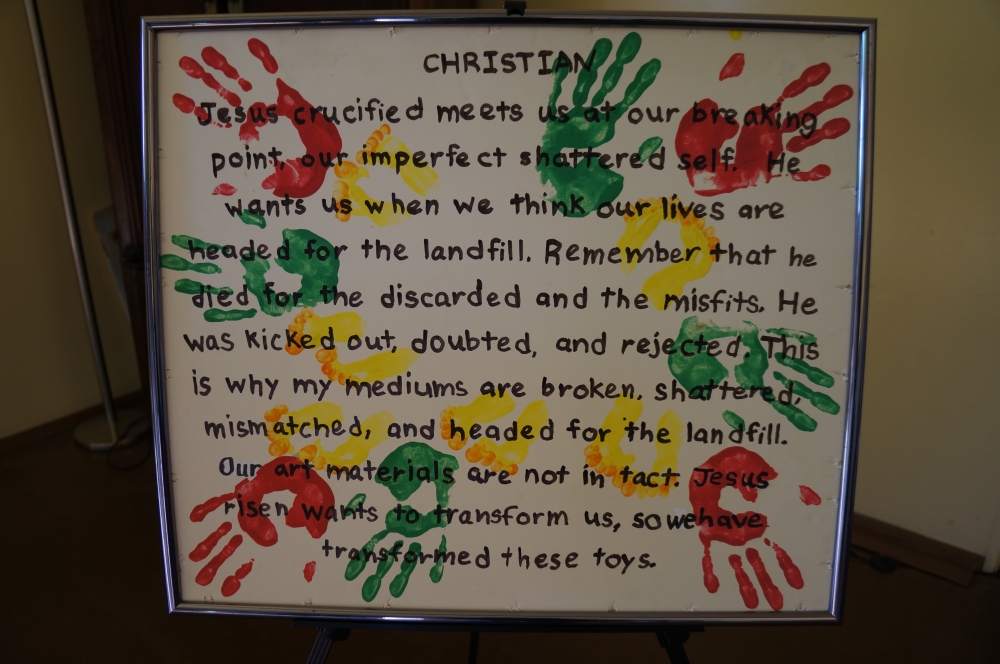 CHRISTIAN
Jesus crucified meets us at our breaking
point, our imperfect shattered self. He
wants us when we think our lives are
headed for the landfill. Remember that he
died for the discarded and the misfits. He
was kicked out, doubted, and rejected. This
is why my mediums are broken, shattered,
mismatched, and headed for the landfill.
Our art materials are not in tact. Jesus
risen wants to transform us, so we have
transformed these toys.